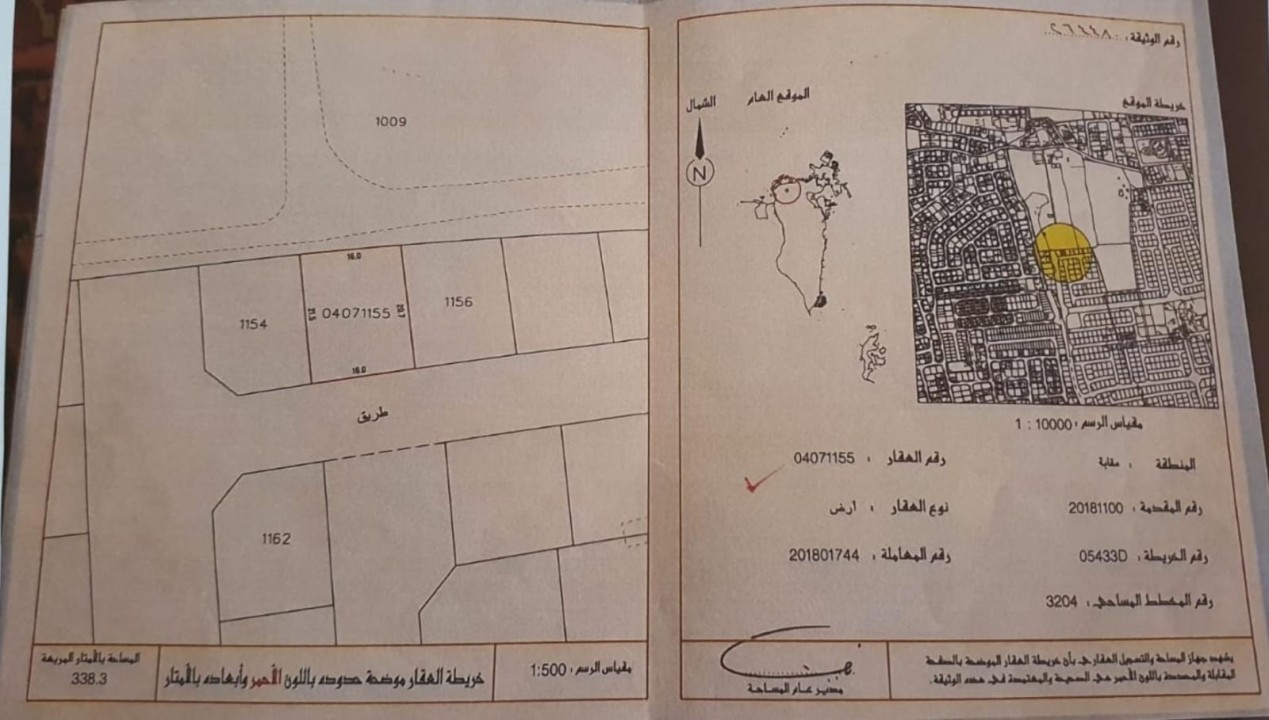 رقم الوثيقة :
الموقع العام
الشمال
N
خريطة الموقع
مقياس الرسم : 10000 : 1
المنطقة : مقابة
رقم العقار : 04071155
رقم المقدمة : 20181100
نوع العقار : ارض
رقم الخريطة : 05433D
رقم المعاملة : 201801744
رقم المخطط المساحي : 3204
يشهد جهاز المساحة والتسجيل العقاري بأن خريطة العقار الموضحة بالصفحة
المقابلة والمحددة باللون الأحمر هي الصحيحة والمعتمدة في هذه الوثيقة .
مدير عام المساحة
1009
16.0
1154
21.5
04071155
20.7
1156
16.0
طريق
1162
مقياس الرسم : 1:500
خريطة العقار موضحة حدوده باللون الأحمر وأبعاده بالأمتار
المساحة بالأمتار المربعة
338.3